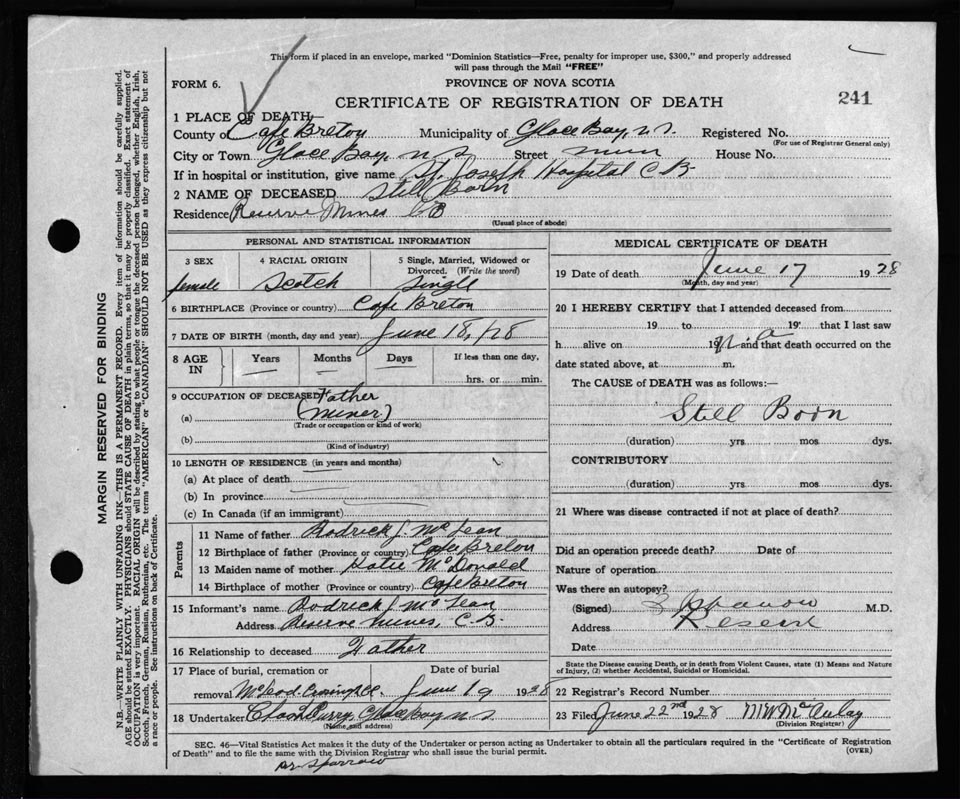 This form if placed in an envelope, marked "Dominion Statistics—Free, penalty for improper use, $300," and properly addressed
will pass through the Mail "FREE"
FORM 6.
PROVINCE OF NOVA SCOTIA
CERTIFICATE OF REGISTRATION OF DEATH
241
1 PLACE OF DEATH—
County of Cape Breton Municipality of Glace Bay, N.S. Registered No.
(For use of Registrar General only)
City or Town Glace Bay, N S Street House No.
If in hospital or institution, give name St. Joseph Hospital C B
2 NAME OF DECEASED Still Born
Residence Reserve Mines CB
(Usual place of abode)
PERSONAL AND STATISTICAL INFORMATION
3 SEX 4 RACIAL ORIGIN 5 Single, Married, Widowed or
Divorced. (Write the word)
female Scotch Single
6 BIRTHPLACE (Province or country) Cape Breton
7 DATE OF BIRTH (month, day and year) June 18, /28
8 AGE IN Years Months Days If less than one day,
hrs. or min.
9 OCCUPATION OF DECEASED Father
(a) (Miner)
(Trade or occupation or kind of work)
(b)
(Kind of industry)
10 LENGTH OF RESIDENCE (in years and months)
(a) At place of death
(b) In province
(c) In Canada (if an immigrant)
Parents
11 Name of father Rodrick J. McLean
12 Birthplace of father (Province or country) Cape Breton
13 Maiden name of mother Katie McDonald
14 Birthplace of mother (Province or country) Cape Breton
15 Informant's name Rodrick J McLean
Address Reserve Mines, C.B.
16 Relationship to deceased Father
17 Place of burial, cremation or Date of burial
removal McLeod June 19 1928
18 Undertaker Perry, Glace Bay N S
(Name and address)
MEDICAL CERTIFICATE OF DEATH
19 Date of death June 17 1928
(Month, day and year)
20 I HEREBY CERTIFY that I attended deceased from
19 to 19 that I last saw
h alive on 19 and that death occurred on the
date stated above, at m.
The CAUSE of DEATH was as follows:—
Still Born
(duration) yrs mos dys.
CONTRIBUTORY
(duration) yrs mos dys.
21 Where was disease contracted if not at place of death?
Did an operation precede death? Date of
Nature of operation
Was there an autopsy?
(Signed) M.D.
Address Reserve
Date
State the Disease causing Death, or in death from Violent Causes, state (1) Means and Nature
of Injury, (2) whether Accidental, Suicidal or Homicidal.
22 Registrar's Record Number
23 Filed June 22nd 1928 M W McAulay
(Division Registrar)
SEC. 46—Vital Statistics Act makes it the duty of the Undertaker or person acting as Undertaker to obtain all the particulars required in the "Certificate of Registration
of Death" and to file the same with the Division Registrar who shall issue the burial permit.
(OVER)
Dr. Sparrow
MARGIN RESERVED FOR BINDING
N.B.—WRITE PLAINLY WITH UNFADING INK—THIS IS A PERMANENT RECORD. Every item of information should be carefully supplied.
AGE should be stated EXACTLY. PHYSICIANS should STATE CAUSE OF DEATH in plain terms, so that it may be properly classified. Exact statement of
OCCUPATION is very important. RACIAL ORIGIN will be described by stating to what people or tongue the deceased person belonged, whether English, Irish,
Scotch, French, German, Russian, Ruthenian, etc. The terms "AMERICAN" or "CANADIAN" SHOULD NOT BE USED as they express citizenship but not
a race or people. See instructions on back of Certificate.